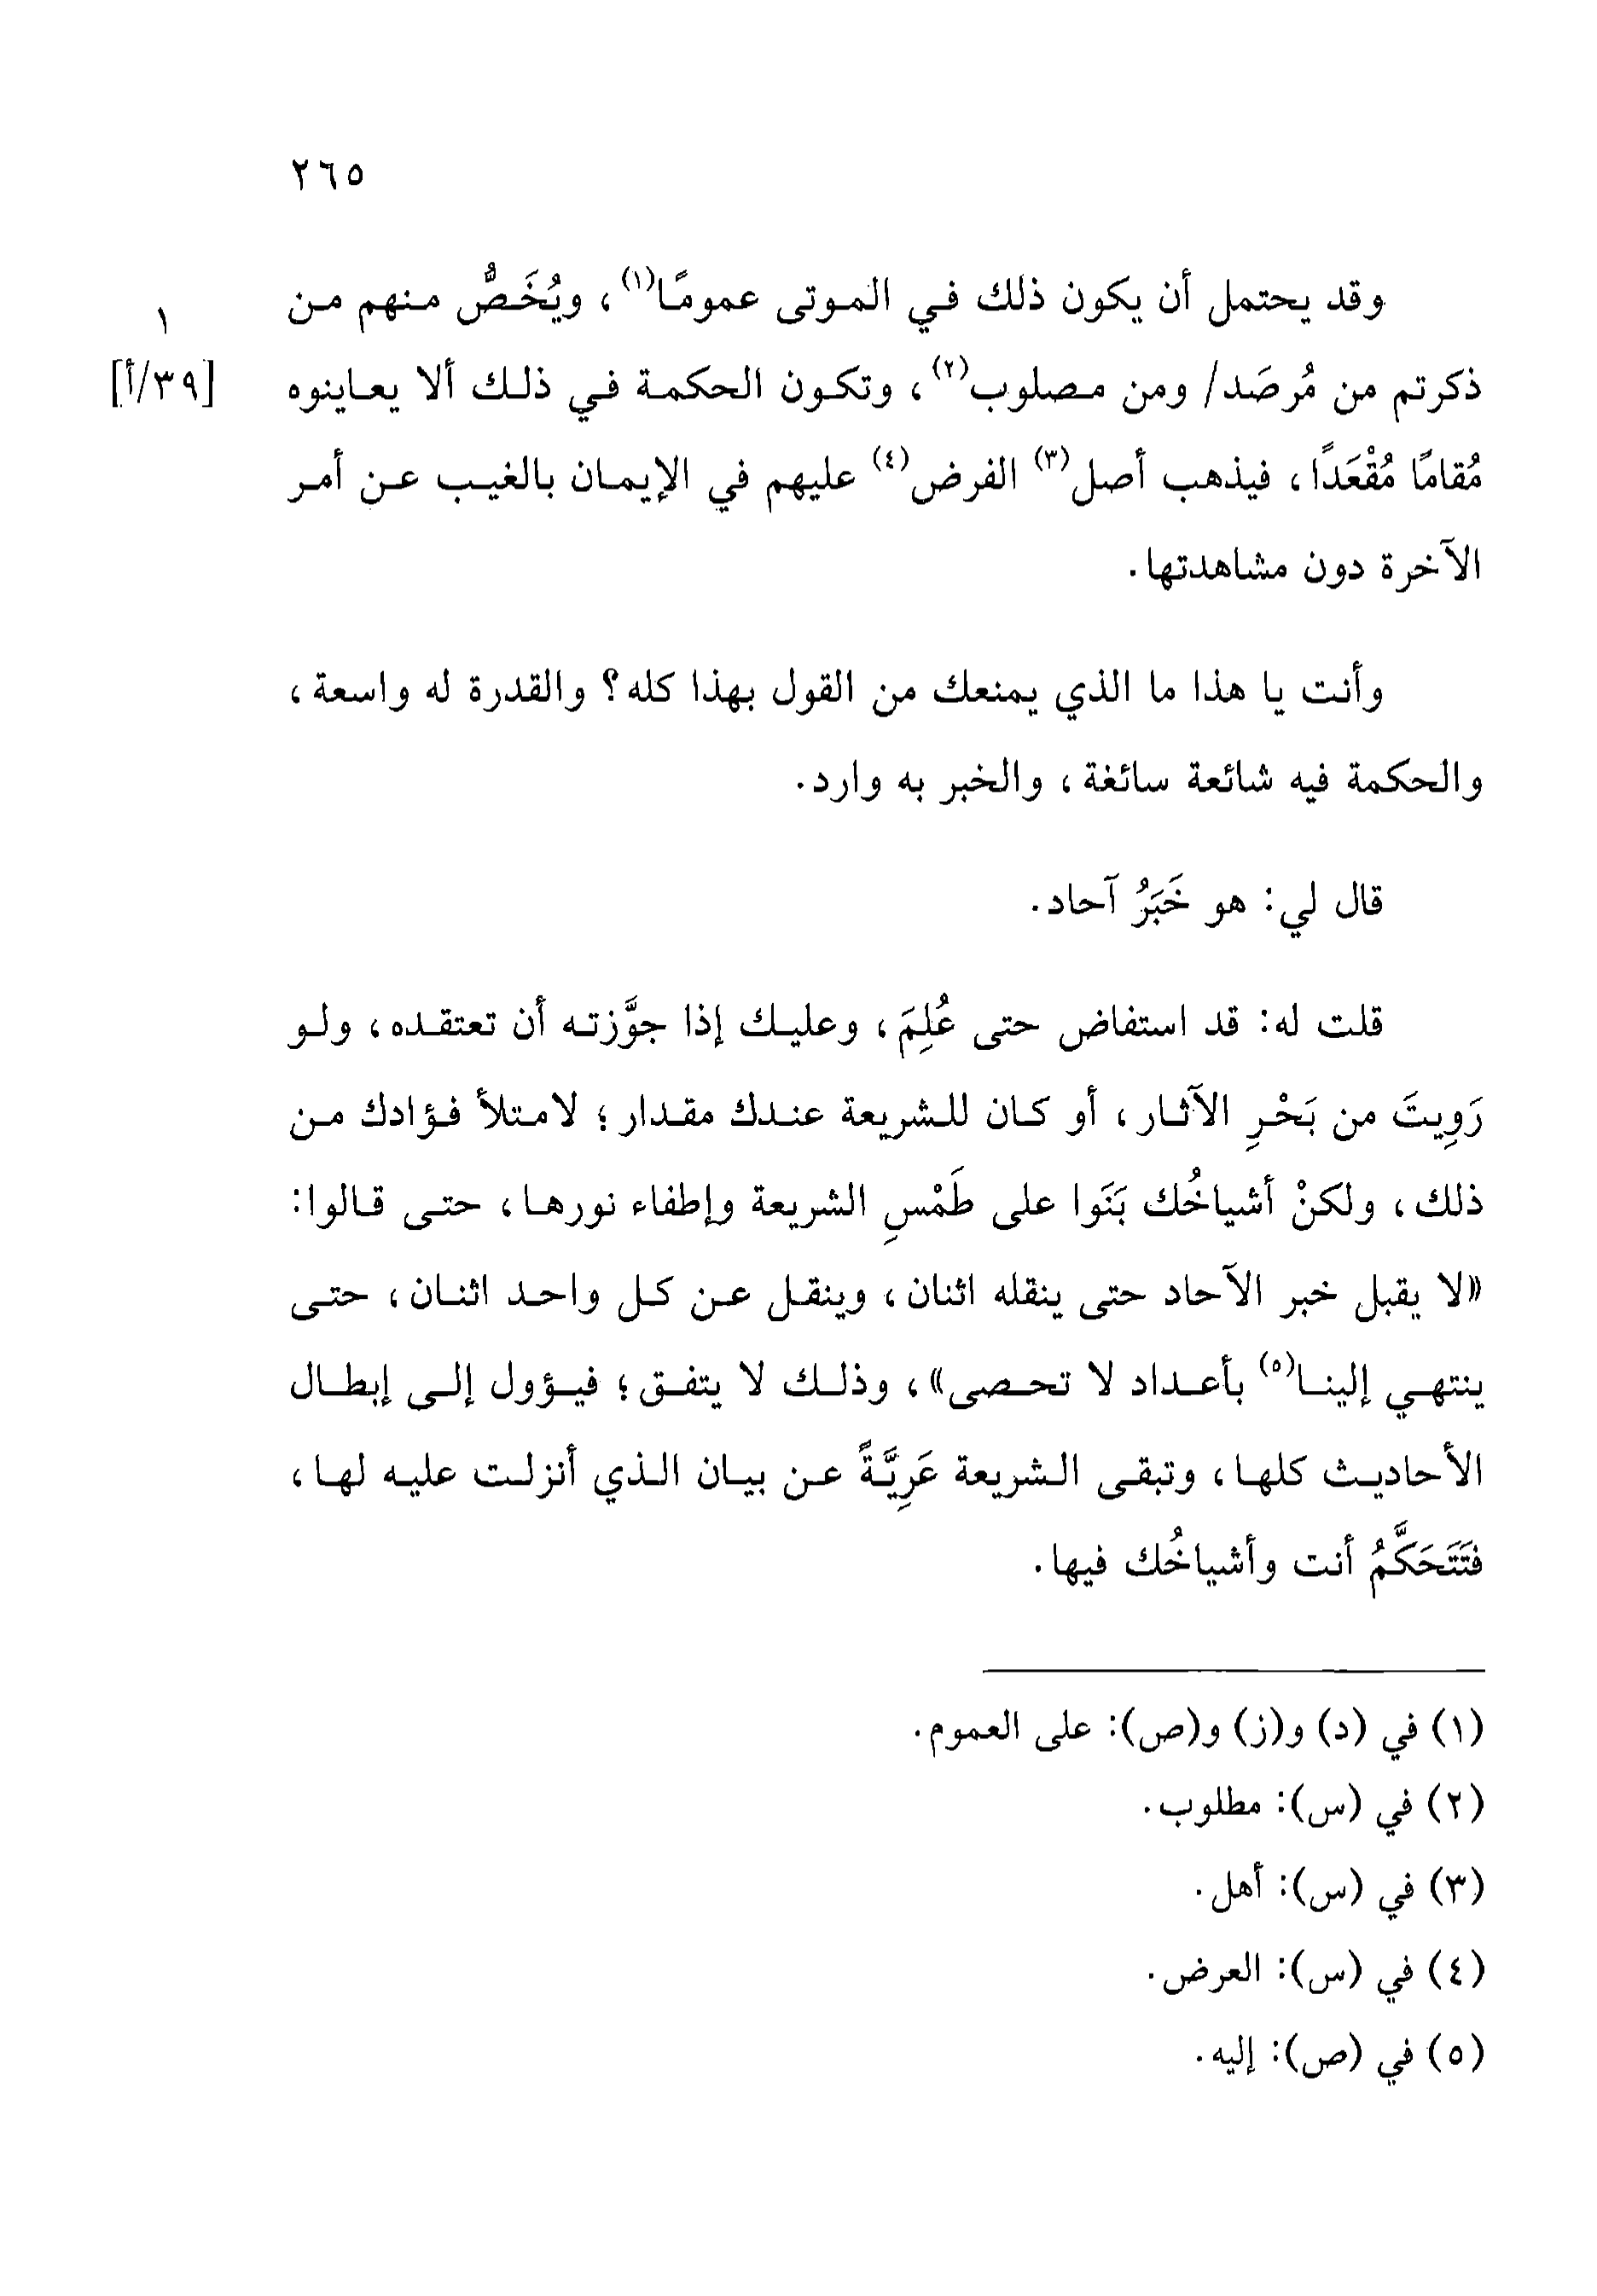 ٢٦٥
وقد يحتمل أن يكون ذلك في الموتى عمومًا(١)، ويُخَصُّ منهم من
١
ذكرتم من مُرصَد/ ومن مصلوب(٢)، وتكون الحكمة في ذلك ألا يعاينوه
[٣٩/أ]
مُقامًا مُقْعَدًا، فيذهب أصل(٣) الفرض(٤) عليهم في الإيمان بالغيب عن أمر
الآخرة دون مشاهدتها.
وأنت يا هذا ما الذي يمنعك من القول بهذا كله؟ والقدرة له واسعة،
والحكمة فيه شائعة سائغة، والخبر به وارد.
قال لي: هو خَبَرُ آحاد.
قلت له: قد استفاض حتى عُلِمَ، وعليك إذا جوَّزته أن تعتقده، ولو
رَوِيتَ من بَحْرِ الآثار، أو كان للشريعة عندك مقدار؛ لامتلأ فؤادك من
ذلك، ولكنْ أشياخُك بَنَوا على طَمْسِ الشريعة وإطفاء نورها، حتى قالوا:
«لا يقبل خبر الآحاد حتى ينقله اثنان، وينقل عن كل واحد اثنان، حتى
ينتهي إلينا(٥) بأعداد لا تحصى»، وذلك لا يتفق؛ فيؤول إلى إبطال
الأحاديث كلها، وتبقى الشريعة عَرِيَّةً عن بيان الذي أنزلت عليه لها،
فتَتَحَكَّمُ أنت وأشياخُك فيها.
(١) في (د) و(ز) و(ص): على العموم.
(٢) في (س): مطلوب.
(٣) في (س): أهل.
(٤) في (س): العرض.
(٥) في (ص): إليه.